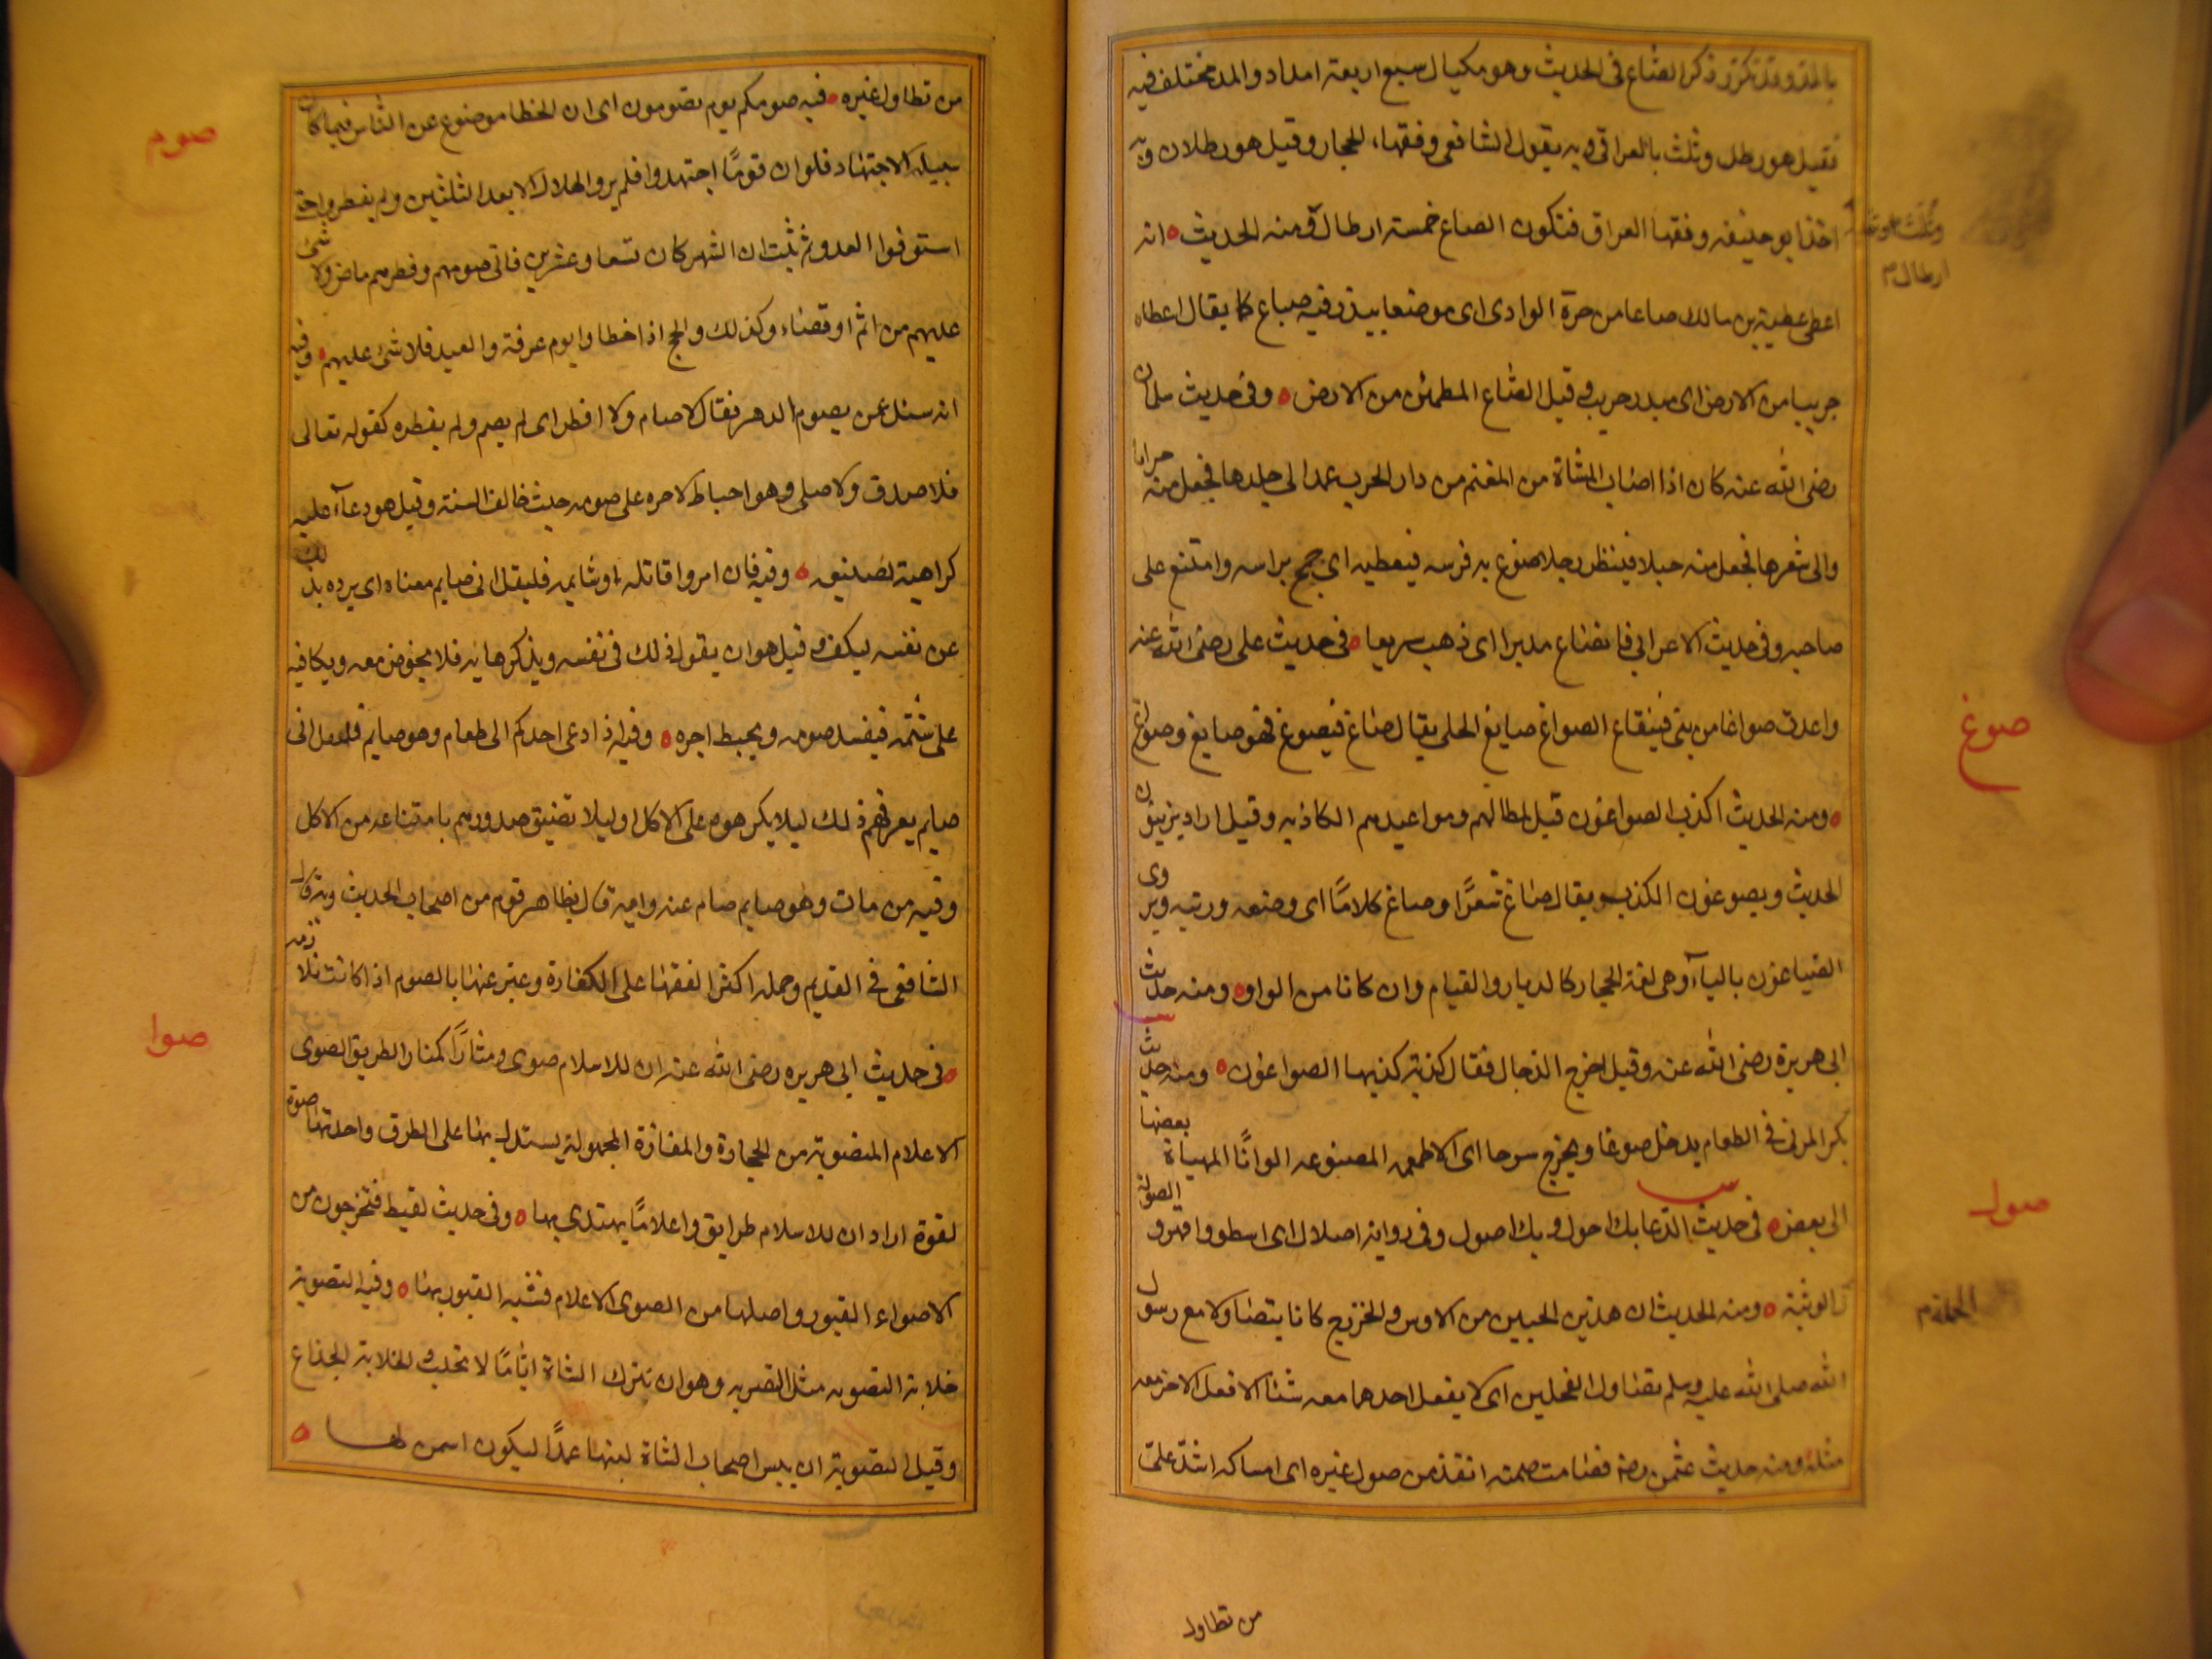 بالمد وقد تكرر ذكر الصاع فى الحديث وهو مكيال يسع اربعة امداد والمد مختلف فيه
فقيل هو رطل وثلث بالعراقى وبه يقول الشافعى وفقهاء الحجاز وقيل هو رطلان وبه
اخذ ابو حنيفه وفقها العراق فتكون الصاع خمسة ارطال ومنه الحديث انه
وثلثا او ثمانية
ارطال م
اعطى عطية بن مالك صاعا من حرة الوادى اى موضعا يبذر فيه صاع كما يقال اعطاه
جريبا من الارض اى مبذر جريب وقيل الصاع المطمئن من الارض وفى حديث سلمان
رضى الله عنه كان اذا اصاب الشاة من المغنم من دار الحرب عمد الى جلدها فجعل منه جرابا
والى شعرها فجعل منه حبلا فينظر رجلا صوع به فرسه فيعطيه اى جمح براسه وامتنع على
صاحبه وفى حديث الاعرابى فانصاع مدبرا اى ذهب سريعا فى حديث على رضى الله عنه
صوغ
واعدت صواغا من بنى قينقاع الصواغ صايغ الحلى يقال صاغ يصوغ فهو صايغ وصواغ
ومنه الحديث اكذب الصواغون قيل لمطالهم ومواعيدهم الكاذبه وقيل اراد يزينون
الحديث ويصوغون الكذب يقال صاغ شعرًا وصاغ كلامًا اى وضعه ورتبه ويروى
الصياغون بالياء وهى لغة الحجاز كالديار والقيام وان كانا من الواو ومنه حديث
ابى هريرة رضى الله عنه وقيل خرج الدجال فقال كذبة كذبها الصواغون ومنه حديث
بكر المزنى فى الطعام يدخل صوغا ويخرج سرحا اى الاطعمه المصنوعه الوانًا المهياة بعضها
الى بعض فى حديث الدعا بك احول وبك اصول وفى رواية اصاول اى اسطو واقهر والصولة
صول
الوثبة ومنه الحديث ان هذين الحيين من الاوس والخزرج كانا يتصاولا مع رسول
الحملة م
الله صلى الله عليه وسلم تصاول الفحلين اى لا يفعل احدهما معه شئا الا فعل الاخر معه
مثله ومنه حديث عثمن رضه فصامت صمته انفذ من صول غيره اى امساكه اشدّ علىّ
من تطاول
من تطاول غيره فيه صومكم يوم تصومون اى ان الخطا موضوع عن الناس فيما كان
صوم
سبيله الاجتهاد فلو ان قومًا اجتهدوا فلم يروا الهلال الا بعد الثلثين ولم يفطروا حتى
استوفوا العدد ثم ثبت ان الشهر كان تسعا وعشرين فان صومهم وفطرهم ماض ولا شئ
عليهم من اثم او قضاء وكذلك والحج اذا اخطاوا يوم عرفة والعيد فلا شئ عليهم وفيه
انه سئل عمن يصوم الدهر فقال لا صام ولا افطر اى لم يصم ولم يفطره كقوله تعالى
فلا صدق ولا صلى وهو احباط لاجره على صومه حيث خالف السنة وقيل هو دعاء عليه
كراهية لصنيعه وفيه فان امروا قاتله او شاتمه فليقل انى صايم معناه اى يرده بذلك
عن نفسه ليكف وقيل هو ان يقول ذلك فى نفسه ويذكرها به فلا يخوض معه ويكافيه
على شتمه فيفسد صومه ويحبط اجره وفيه اذا دعى احدكم الى طعام وهو صايم فليقل انى
صايم يعرفهم ذلك ليلا يكرهوه على الاكل او ليلا تضيق صدورهم بامتناعه من الاكل
وفيه من مات وهو صايم صام عنه وليه قال بظاهره قوم من اصحاب الحديث وبه قال
الشافعى فى القديم وحمله اكثر الفقها على الكفارة وعبر عنها بالصوم اذا كانت تلازمه
فى حديث ابى هريره رضى الله عنه ان للاسلام صوى ومنارًا كمنار الطريق الصوى
صوا
الاعلام المنصوبة من الحجارة والمفازة المجهولة يستدل بها على الطرق واحدتها صوة
لقوة اراد ان للاسلام طرايق واعلامًا يهتدى بها وفى حديث لقيط فتخرجون من
الاصواء القبور واصلها من الصوى الاعلام فشبه القبور بها وفيه التصوية
خلابة التصويه مثل التصريه وهو ان تترك الشاة ايامًا لا تحلب والخلابة الخداع
وقيل التصوية ان ييبس اصحاب الشاة لبنها عمدًا ليكون اسمن لها